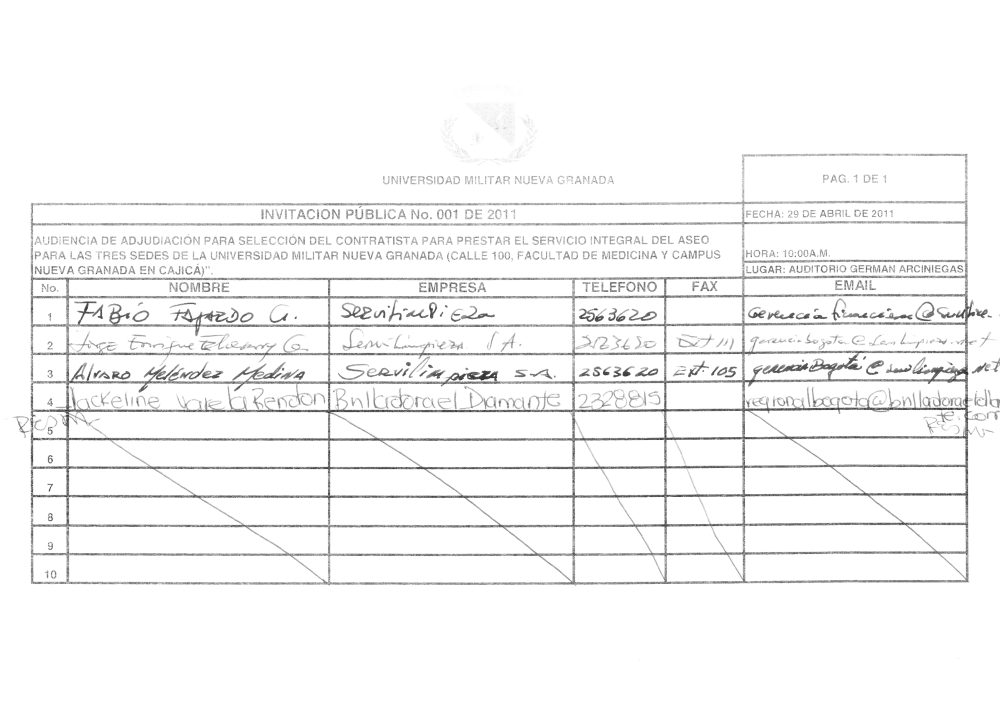 UNIVERSIDAD MILITAR NUEVA GRANADA
PAG. 1 DE 1
INVITACION PÚBLICA No. 001 DE 2011
FECHA: 29 DE ABRIL DE 2011
AUDIENCIA DE ADJUDIACIÓN PARA SELECCIÓN DEL CONTRATISTA PARA PRESTAR EL SERVICIO INTEGRAL DEL ASEO
PARA LAS TRES SEDES DE LA UNIVERSIDAD MILITAR NUEVA GRANADA (CALLE 100, FACULTAD DE MEDICINA Y CAMPUS
NUEVA GRANADA EN CAJICÁ)".
HORA: 10:00A.M.
LUGAR: AUDITORIO GERMAN ARCINIEGAS
No. NOMBRE EMPRESA TELEFONO FAX EMAIL
1 FABIO FAJARDO G. SERVILIMPIEZA 2563620 Gerencia financiera
2 Jorge Enrique Servilimpieza S.A. Ext 111
3 Alvaro Meléndez Medina Servilimpieza S.A. 2563620 Ext. 105
4 Jackeline Varela Rendon Brilladora el Diamante 2328815
5
6
7
8
9
10